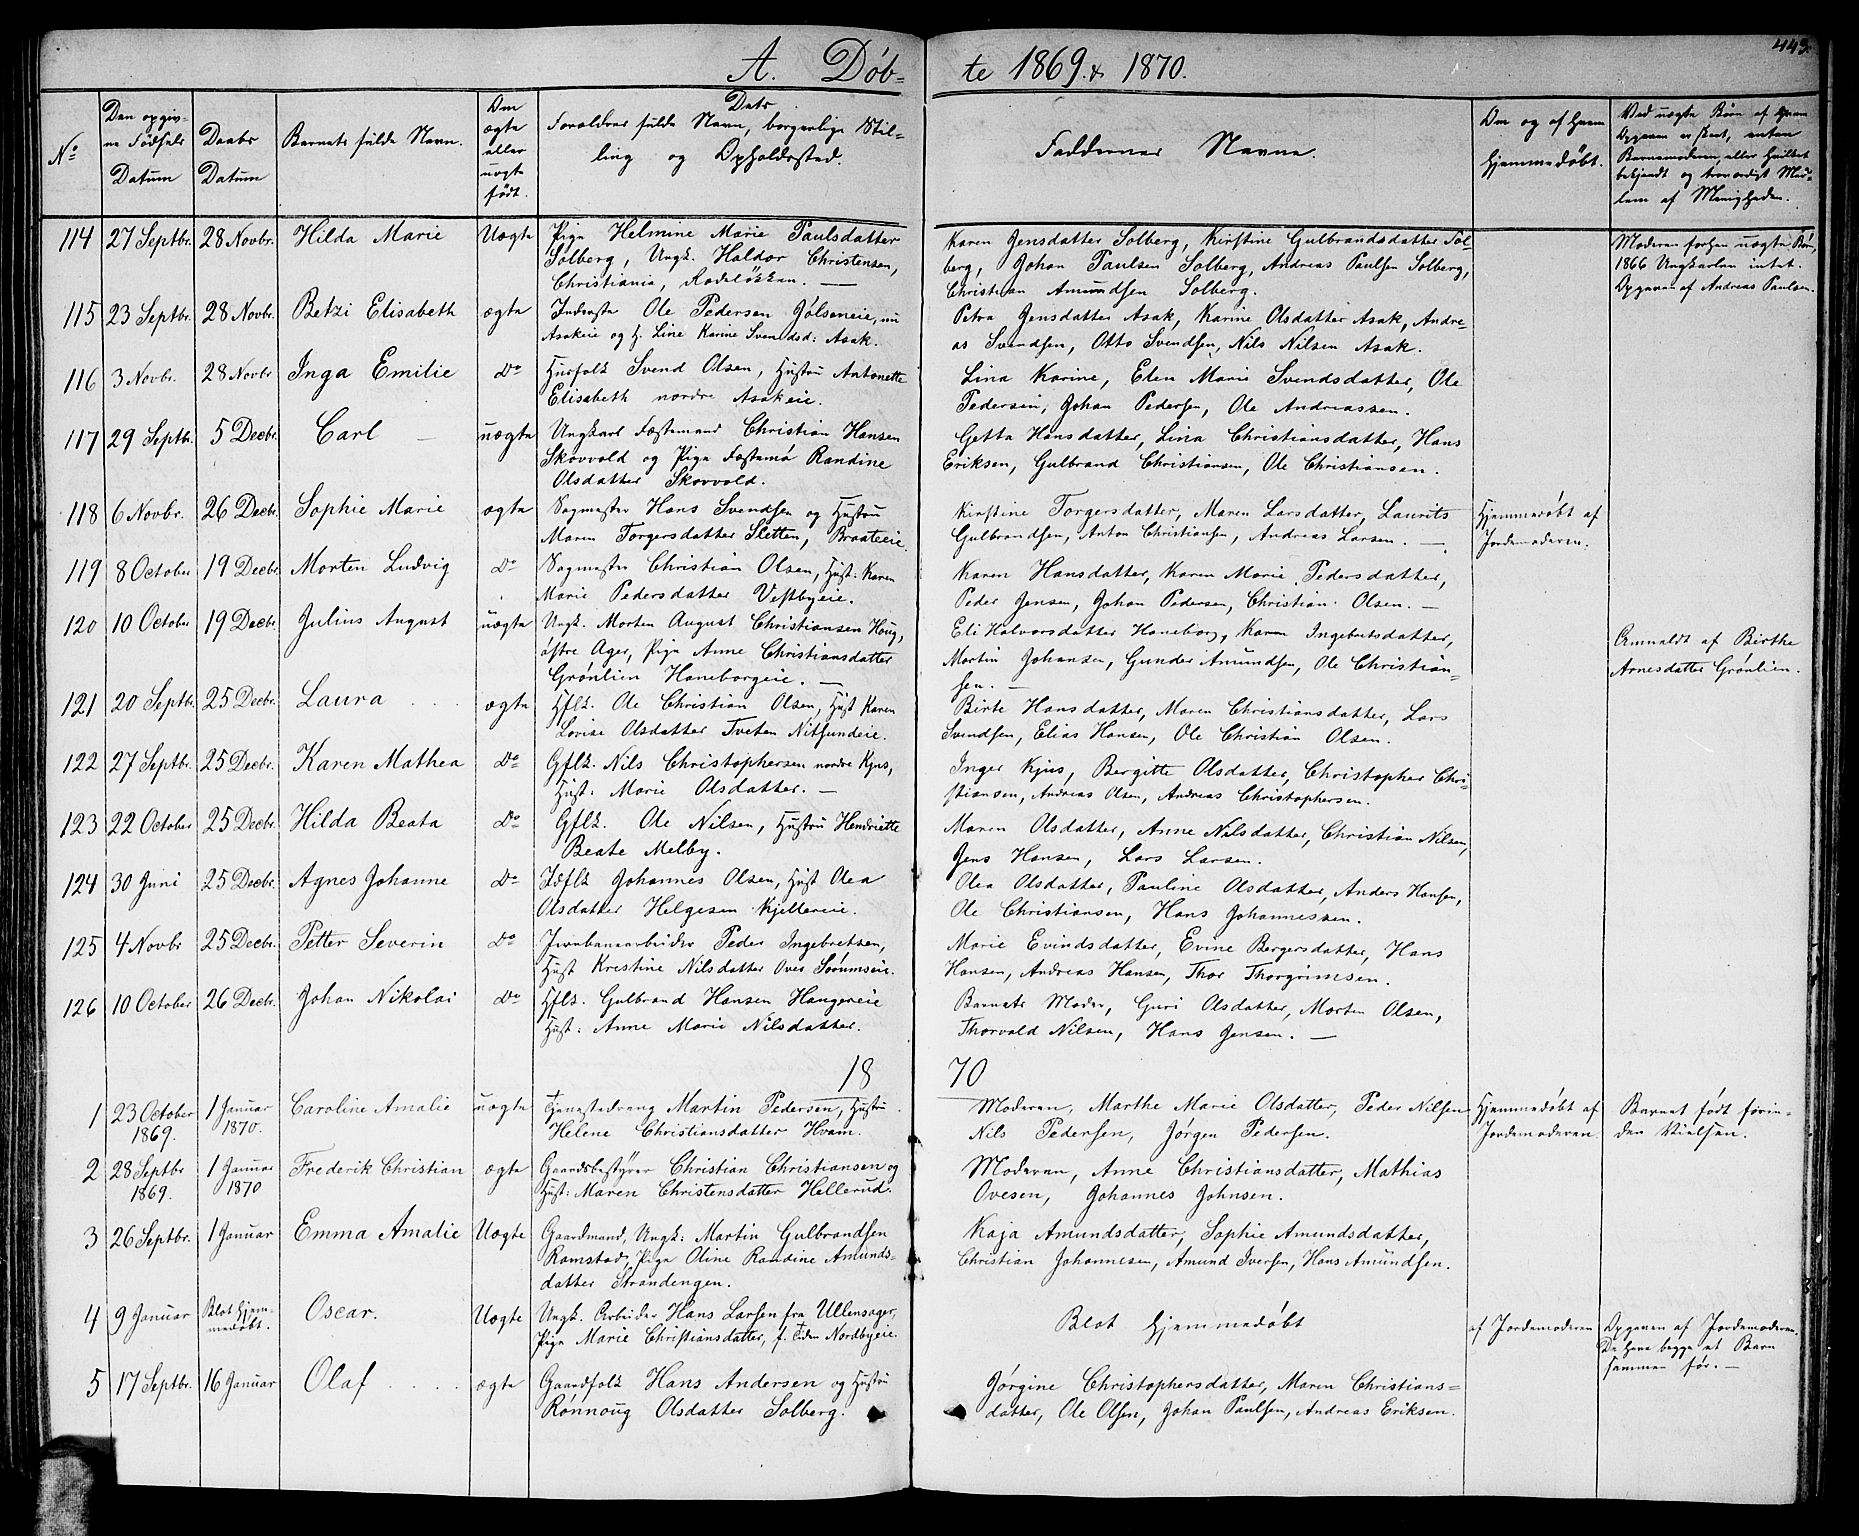 443.
A. Døb- te 1869. & 1870.
No
Den opgiv-
ne Fødsels
Datum
Daabs
Datum
Barnets fulde Navn.
Om
ægte
eller
uægte
født.
Dets
Forældres fulde Navn, borgerlige Stil-
ling og Opholdssted.
Faddernes Navne.
Om og af Hvem
hjemmedøbt.
Ved uægte Børn af Hvem
Opgaven er skeet, enten
Barnemoderen, eller hvilket
bekjendt og troværdigt Med-
lem af Menigheden.
114 27 Septbr. 28 Novbr. Hilda Marie Uægte Pige Helmine Marie Paulsdatter
Solberg, Ungk. Haldor Christensen,
Christiania, Rodeløkken. —
Karen Jensdatter Solberg, Kirstine Gulbrandsdatter Sol-
berg, Johan Paulsen Solberg, Andreas Paulsen Solberg,
Christian Amundsen Solberg.
Moderen forhen uægte Børn,
1866 Ungkarlen intet.
Opgaven af Andreas Paulsen.
115 23 Septbr. 28 Novbr. Betzi Elisabeth ægte Inderste Ole Pedersen Jølseneie, nu
Asakeie og H. Line Karine Svendsd: Asak.
Petra Jensdatter Asak, Karine Olsdatter Asak, Andre-
as Svendsen, Otto Svendsen, Nils Nilsen Asak.
116 3 Novbr. 28 Novbr Inga Emilie Do Husfolk Svend Olsen, Hustru Antonette
Elisabeth nordre Asakeie.
Lina Karine, Elen Marie Svendsdatter, Ole
Pedersen, Johan Pedersen, Ole Andreassen.
117 29 Septbr. 5 Decbr. Carl — uægte Ungkarl Fæstemand Christian Hansen
Skovvold og Pige Fæstemø Randine
Olsdatter Skovvold.
Getta Hansdatter, Lina Christiansdatter, Hans
Eriksen, Gulbrand Christiansen, Ole Christiansen.
118 6 Novbr. 26 Decbr. Sophie Marie ægte Sagmester Hans Svendsen og Hustru
Maren Torgersdatter Sletten, Braateeie.
Kirstine Torgersdatter, Maren Larsdatter, Laurits
Gulbrandsen, Anton Christiansen, Andreas Larsen. —
Hjemmedøbt af
Jordemoderen.
119 8 October 19 Decbr. Morten Ludvig Do Sagmester Christian Olsen, Hust: Karen
Marie Pedersdatter Vestbyeie.
Karen Hansdatter, Karen Marie Pedersdatter,
Peder Jensen, Johan Pedersen, Christian Olsen. —
120 10 October 19 Decbr. Julius August uægte Ungk. Morten August Christiansen Haug,
østre Ager, Pige Anne Christiansdatter
Grønlien Haneborgeie. —
Eli Halvorsdatter Haneborg, Karen Ingebretsdatter,
Martin Johansen, Gunder Amundsen, Ole Christian-
sen. —
Anmeldt af Birthe
Arnesdatter Grønlien.
121 20 Septbr. 25 Decbr. Laura ægte Hflk. Ole Christian Olsen, Hust Karen
Lovise Olsdatter Tveten Nitsundeie.
Birte Hansdatter, Maren Christiansdatter, Lars
Svendsen, Elias Hansen, Ole Christian Olsen.
122 27 Septbr. 25 Decbr. Karen Mathea Do Gflk. Nils Christophersen nordre Kjus,
Hust: Marie Olsdatter. —
Inger Kjus, Bergitte Olsdatter, Christopher Chri-
stiansen, Andreas Olsen, Andreas Christophersen.
123 22 October 25 Decbr. Hilda Beata Do Gflk. Ole Nilsen, Hustru Henriette
Beate Melby.
Maren Olsdatter, Anne Nilsdatter, Christian Nilsen,
Jens Hansen, Lars Larsen.
124 30 Juni 25 Decbr. Agnes Johanne Do Idflk Johannes Olsen, Hust Olea
Olsdatter Helgesen Kjellereie.
Olea Olsdatter, Pauline Olsdatter, Anders Hansen,
Ole Christiansen, Hans Johannessen.
125 4 Novbr 25 Decbr. Petter Severin Do Jernbanearbeider Peder Ingebretsen,
Hust Krestine Nilsdatter Oves Sørumseie.
Marie Evindsdatter, Evine Bergersdatter, Hans
Hansen, Andreas Hansen, Thor Thorgrimsen.
126 10 October 26 Decbr. Johan Nikolai Do Hflk. Gulbrand Hansen Haugereie
Hust: Anne Marie Nilsdatter.
Barnets Moder, Guri Olsdatter, Morten Olsen,
Thorvald Nilsen, Hans Jensen. —
18 70
1 23 October 1 Januar Caroline Amalie uægte Tjenestedreng Martin Pedersen, Hustru
1869. 1870. Helene Christiansdatter Hvam.
Moderen, Marthe Marie Olsdatter, Peder Nilsen
Nils Pedersen, Jørgen Pedersen.
Hjemmedøbt af
Jordemoderen.
Barnet født førin-
den Vielsen.
2 28 Septbr 1 Januar Frederik Christian ægte Gaardsbestyrer Christian Christiansen og
1869. 1870 Hust: Maren Christensdatter Hellerud.
Moderen, Anne Christiansdatter, Mathias
Ovesen, Johannes Johnsen.
3 26 Septbr. 1 Januar Emma Amalie Uægte Gaardmand, Ungk: Martin Gulbrandsen
Ramstad, Pige Oline Randine Amunds-
datter Strandengen.
Kaja Amundsdatter, Sophie Amundsdatter,
Christian Johannesen, Amund Iversen, Hans Amundsen.
4 9 Januar Blot Hjem-
medøbt. Oscar. Uægte Ungk. Arbeider Hans Larsen fra Ullensager,
Pige Marie Christiansdatter, f. Eiden Nordbyeie.
Blot Hjemmedøbt
af Jordemoderen
Opgaven af Jordemoderen.
De have begge et Barn
sammen før. —
5 17 Septbr. 16 Januar Olaf ægte Gaardfolk Hans Andersen og Hustru
Rønnoug Olsdatter Solberg.
Jørgine Christophersdatter, Maren Christians-
datter, Ole Olsen, Johan Paulsen, Andreas Eriksen.